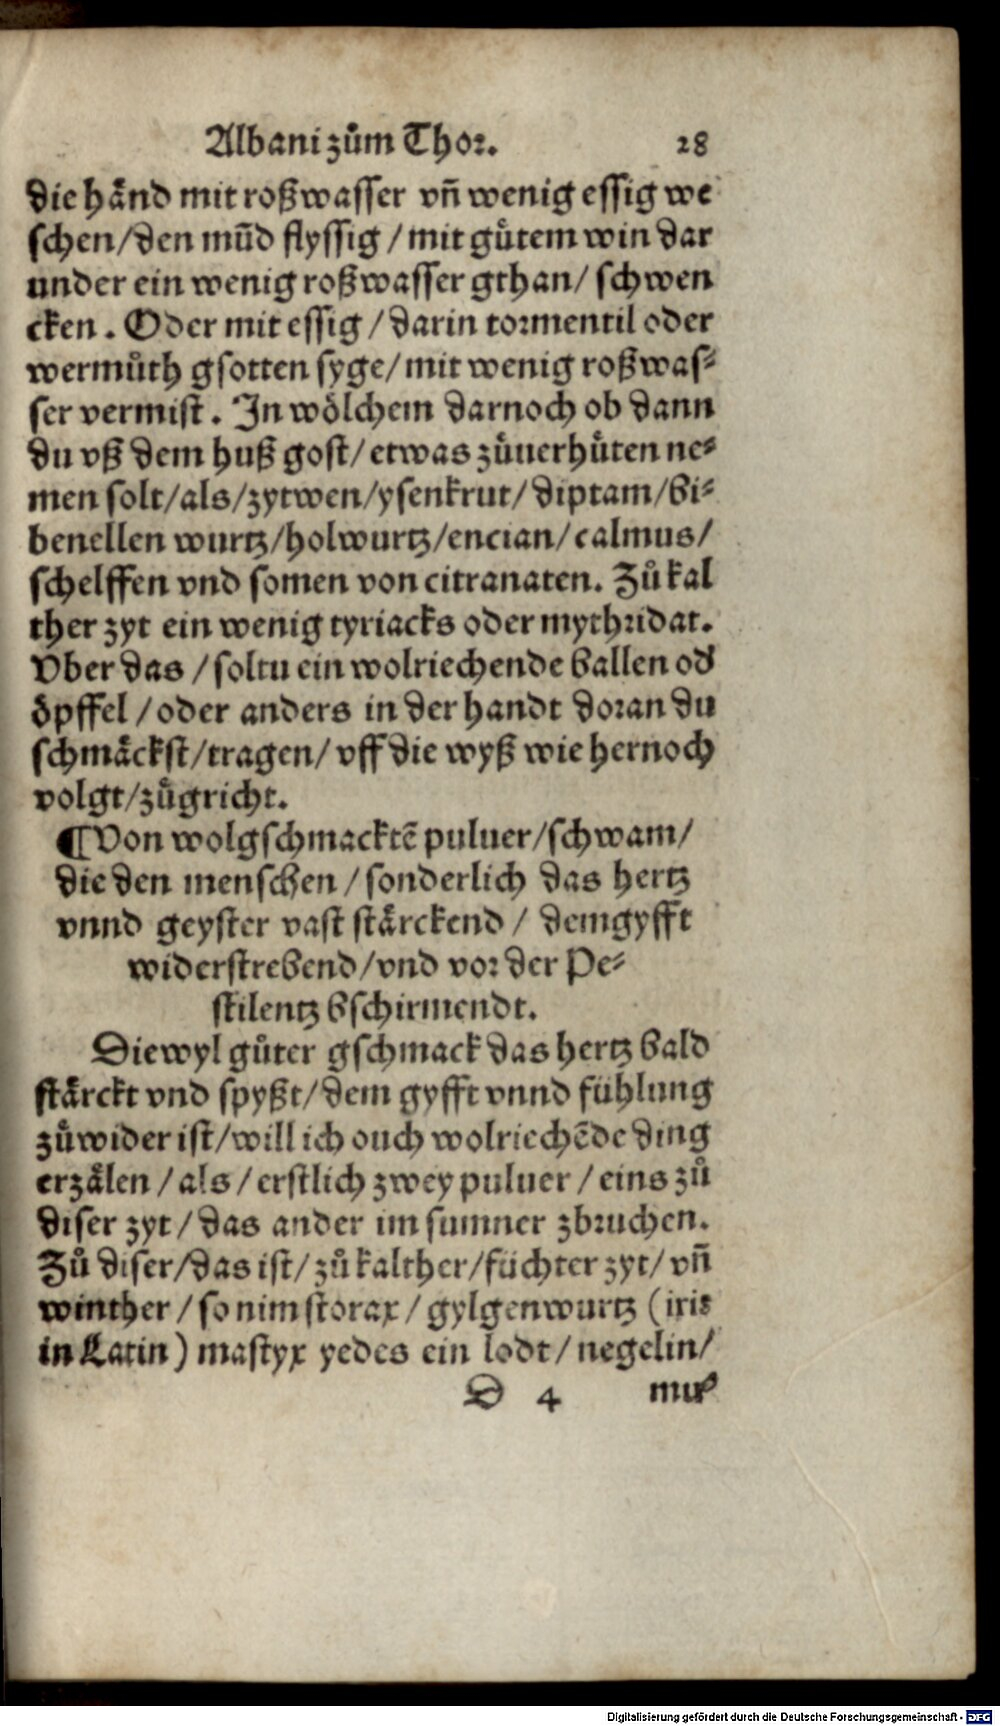 Albani zům Thor. 28
die händ mit roßwasser vn̄ wenig essig we
schen/den mūd flyssig/mit gůtem win dar
under ein wenig roßwasser gthan/schwen
cken. Oder mit essig/darin tormentil oder
wermůth gsotten syge/mit wenig roßwas⸗
ser vermist. In wölchem darnoch ob dann
du vß dem huß gost/etwas zůuerhůten ne⸗
men solt/als/zytwen/ysenkrut/diptam/bi⸗
benellen wurtz/holwurtz/encian/calmus/
schelffen vnd somen von citranaten. Zů kal
ther zyt ein wenig tyriacks oder mythridat.
Vber das/soltu ein wolriechende ballen od
öpffel/oder anders in der handt doran du
schmäckst/tragen/vff die wyß wie hernoch
volgt/zůgricht.
¶Von wolgschmacktē puluer/schwam/
die den menschen/sonderlich das hertz
vnnd geyster vast stärckend/demgyfft
widerstrebend/vnd vor der Pe⸗
stilentz bschirmendt.
Diewyl gůter gschmack das hertz bald
stärckt vnd spyßt/dem gyfft vnnd fühlung
zůwider ist/will ich ouch wolriechēde ding
erzälen/als/erstlich zwey puluer/eins zů
diser zyt/das ander im summer zbruchen.
Zů diser/das ist/zů kalther/füchter zyt/vn̄
winther/so nim storax/gylgenwurtz (iris
in Latin) mastyx yedes ein lodt/negelin/
D 4
Digitalisierung gefördert durch die Deutsche Forschungsgemeinschaft - DFG